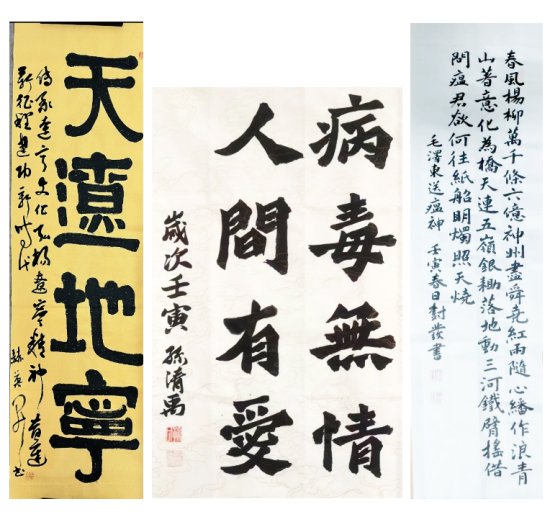 天遼地寧
傳承遼寧文化弘揚遼寧精神奮進
新征程建功新時代
病毒無情
人間有愛
歲次壬寅 孫清禹
春風楊柳萬千條六億神州盡舜堯紅雨隨心繙作浪青
山著意化為橋天連五嶺銀耡落地動三河鐵臂搖借
問瘟君欲何往紙船明燭照天燒
毛澤東送瘟神 壬寅春日對叢書